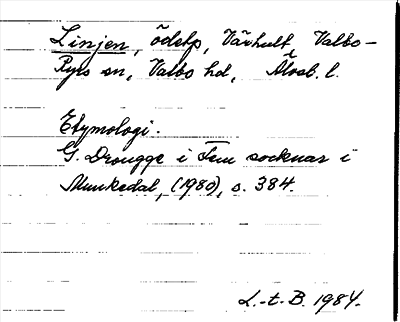 Linjen, ödetp, Vävhult, Valbo-
Ryrs sn, Valbo hd, Älvsb. l.
Etymologi.
G. Drougge i Fem socknar i
Munkedal, (1980), s. 384.
L.-t. B. 1984.